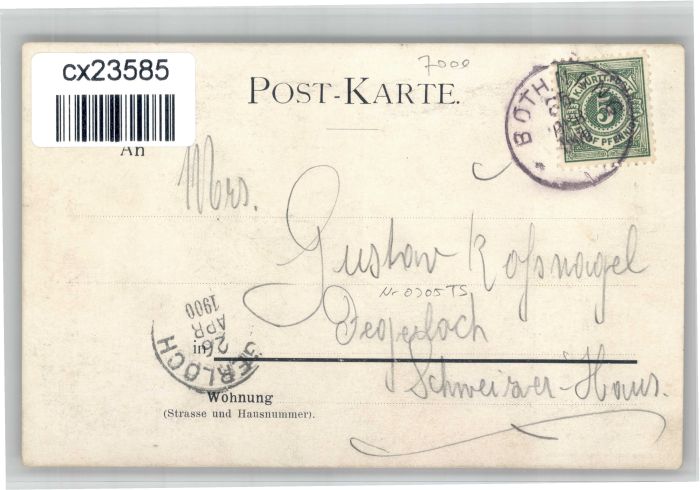 7000
cx23585
POST-KARTE.
BOTH
K. WÜRTT. POST
5
FÜNF PFENNIG
An
Mrs.
Gustav Roßnagel
Nr 0305 TS
Degerloch
in
GERLOCH
26
APR
1900
Schweizer-Haus.
Wohnung
(Strasse und Hausnummer).